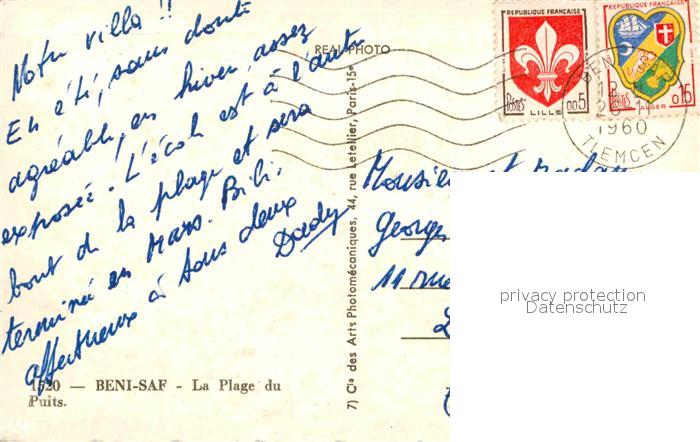 Notre villa !!
En été, sans doute
agréable, en hiver, assez
exposée. L'école est à l'autre
bout de la plage et sera
terminée en Mars. Bibi.
affectueux à tous deux
Dady
1520 — BENI-SAF - La Plage du
Puits.
REAL PHOTO
7) Cie des Arts Photomécaniques, 44, rue Letellier, Paris-15e
REPUBLIQUE FRANÇAISE
POSTES 005
LILLE
REPUBLIQUE FRANÇAISE
POSTES 0,15
ALGER
BENI
1960
TLEMCEN
Monsieur et Madame
Georges
11 rue
privacy protection
Datenschutz